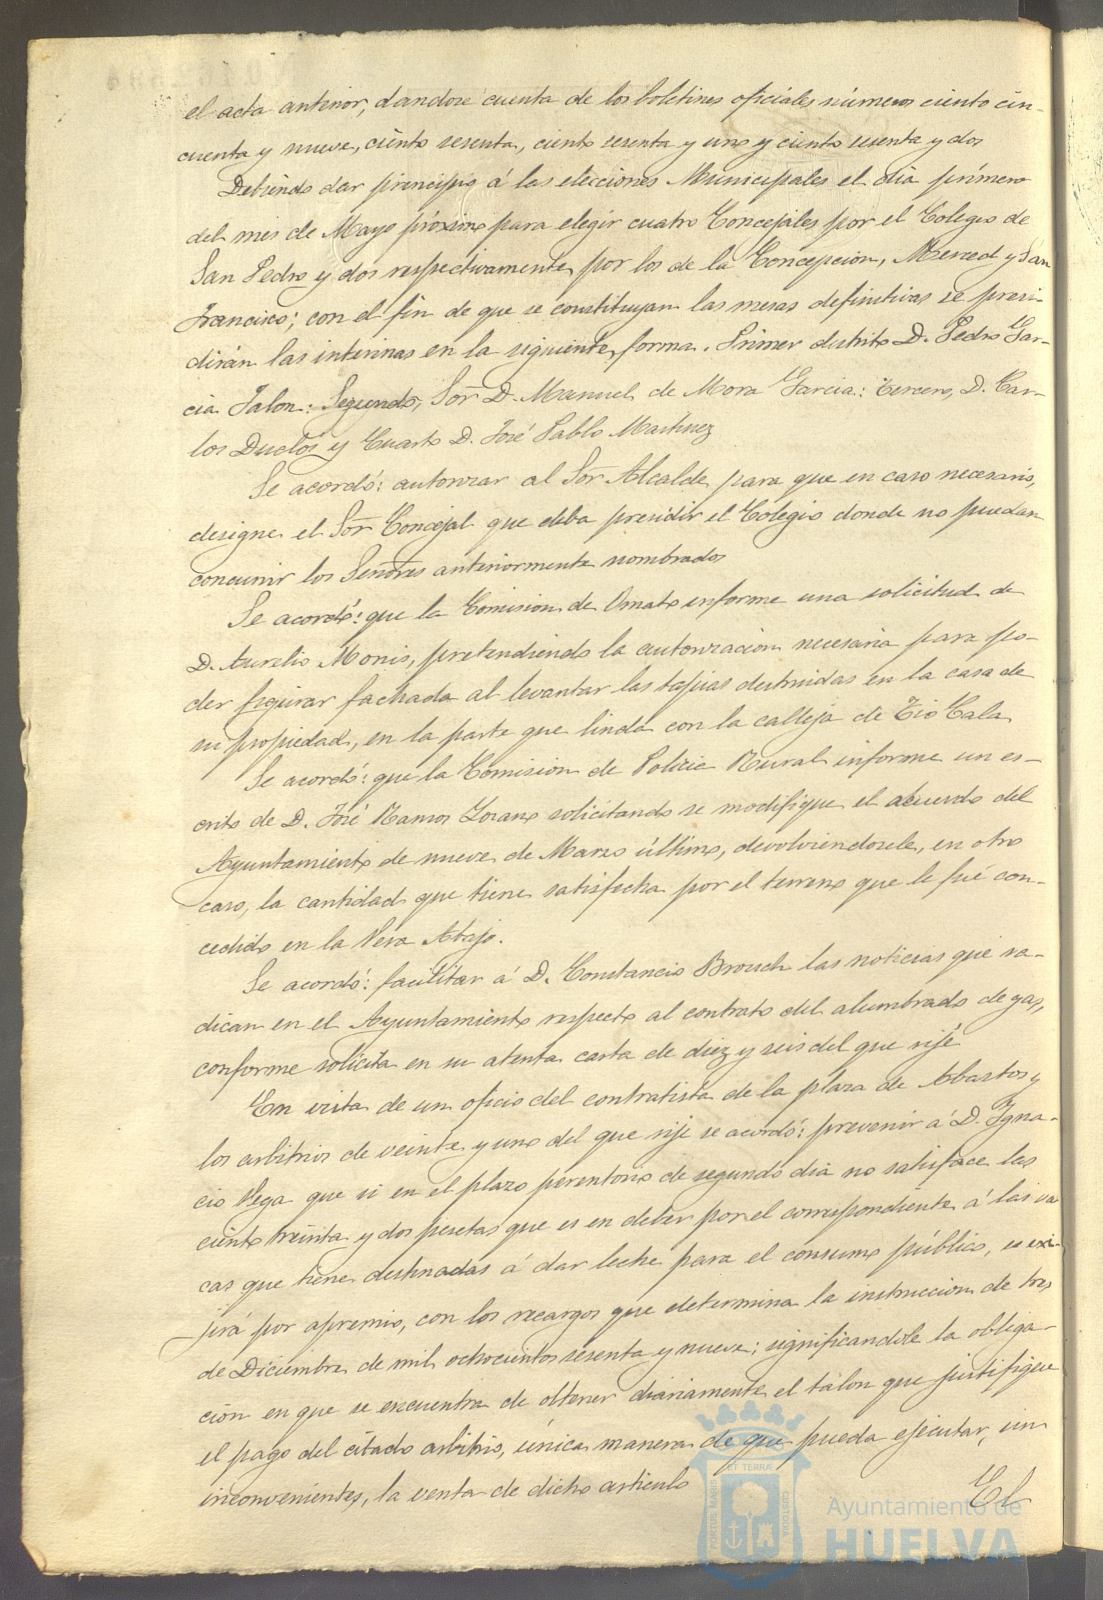 el acta anterior, dandose cuenta de los boletines oficiales números ciento cin-
cuenta y nueve, ciento sesenta, ciento sesenta y uno y ciento sesenta y dos
Debiendo dar principio á las elecciones Municipales el dia primero
del mes de Mayo próximo para elegir cuatro Concejales por el Colegio de
San Pedro y dos respectivamente por los de la Concepcion, Merced y San
Francisco; con el fin de que se constituyan las mesas definitivas se presi-
dirán las interinas en la siguiente forma. Primer distrito D. Pedro Gar-
cia Jalon: Segundo, Sor D. Manuel de Mora Garcia: Tercero, D. Car-
los Duclós y Cuarto D. José Pablo Martinez
Se acordó: autorizar al Sor Alcalde para que en caso necesario,
designe el Sor Concejal que deba presidir el Colegio donde no puedan
concurrir los Señores anteriormente nombrados
Se acordó: que la Comision de Ornato informe una solicitud de
D. Aurelio Monis, pretendiendo la autorizacion necesaria para po-
der figurar fachada al levantar las tapias destruidas en la casa de
su propiedad, en la parte que linda con la calleja de Tio Cala
Se acordó: que la Comision de Policia Rural informe un es-
crito de D. José Ramos Lozano solicitando se modifique el acuerdo del
Ayuntamiento de nueve de Marzo último, devolviendosele, en otro
caso, la cantidad que tiene satisfecha por el terreno que le fué con-
cedido en la Vera Abajo.
Se acordó: facilitar á D. Constancio Brouch las noticias que ra-
dican en el Ayuntamiento respecto al contrato del alumbrado de gas,
conforme solicita en su atenta carta de diez y seis del que rije
En vista de un oficio del contratista de la plaza de Abastos y
los arbitrios de veinte y uno del que rije se acordó: prevenir á D. Igna-
cio Vega que si en el plazo perentorio de segundo dia no satisface las
ciento treinta y dos pesetas que es en deber por el correspondiente á las va
cas que tiene destinadas á dar leche para el consumo público, se exi-
jirá por apremio, con los recargos que determina la instruccion de tres
de Diciembre de mil ochocientos sesenta y nueve; significandole la obliga-
ción en que se encuentra de obtener diariamente el talon que justifique
el pago del citado arbitrio, única manera de que pueda ejecutar, sin
inconvenientes, la venta de dicho articulo
El
Ayuntamiento de
HUELVA